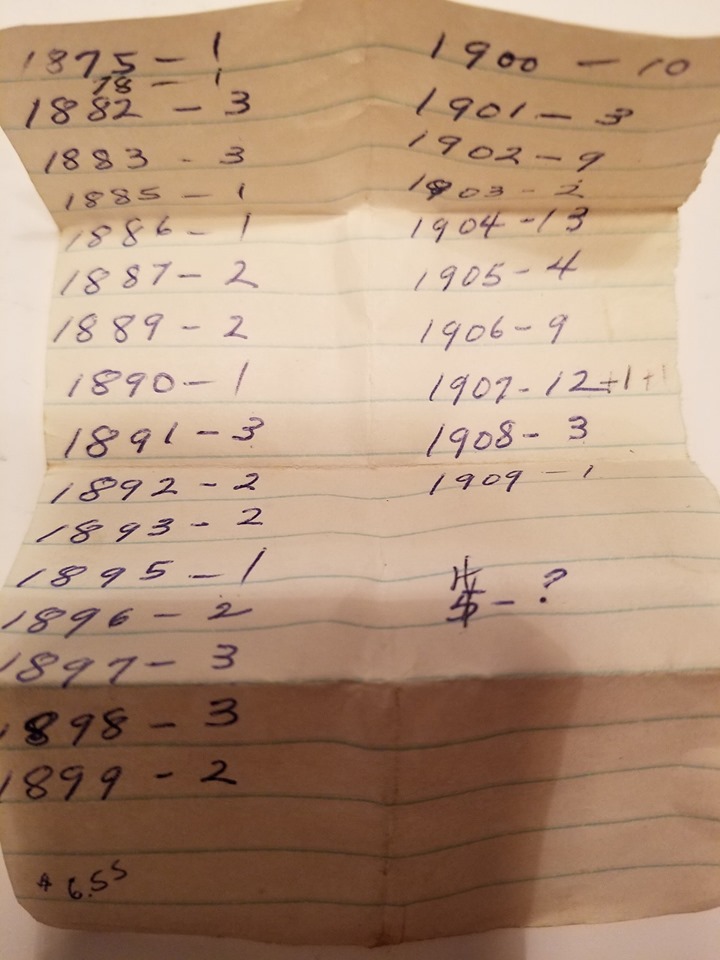 1875 - 1
78 - 1
1882 - 3
1883 - 3
1885 - 1
1886 - 1
1887 - 2
1889 - 2
1890 - 1
1891 - 3
1892 - 2
1893 - 2
1895 - 1
1896 - 2
1897 - 3
1898 - 3
1899 - 2
6.55
1900 - 10
1901 - 3
1902 - 9
1903 - 2
1904 - 13
1905 - 4
1906 - 9
1907 - 12 +1 +1
1908 - 3
1909 - 1
4
- ?